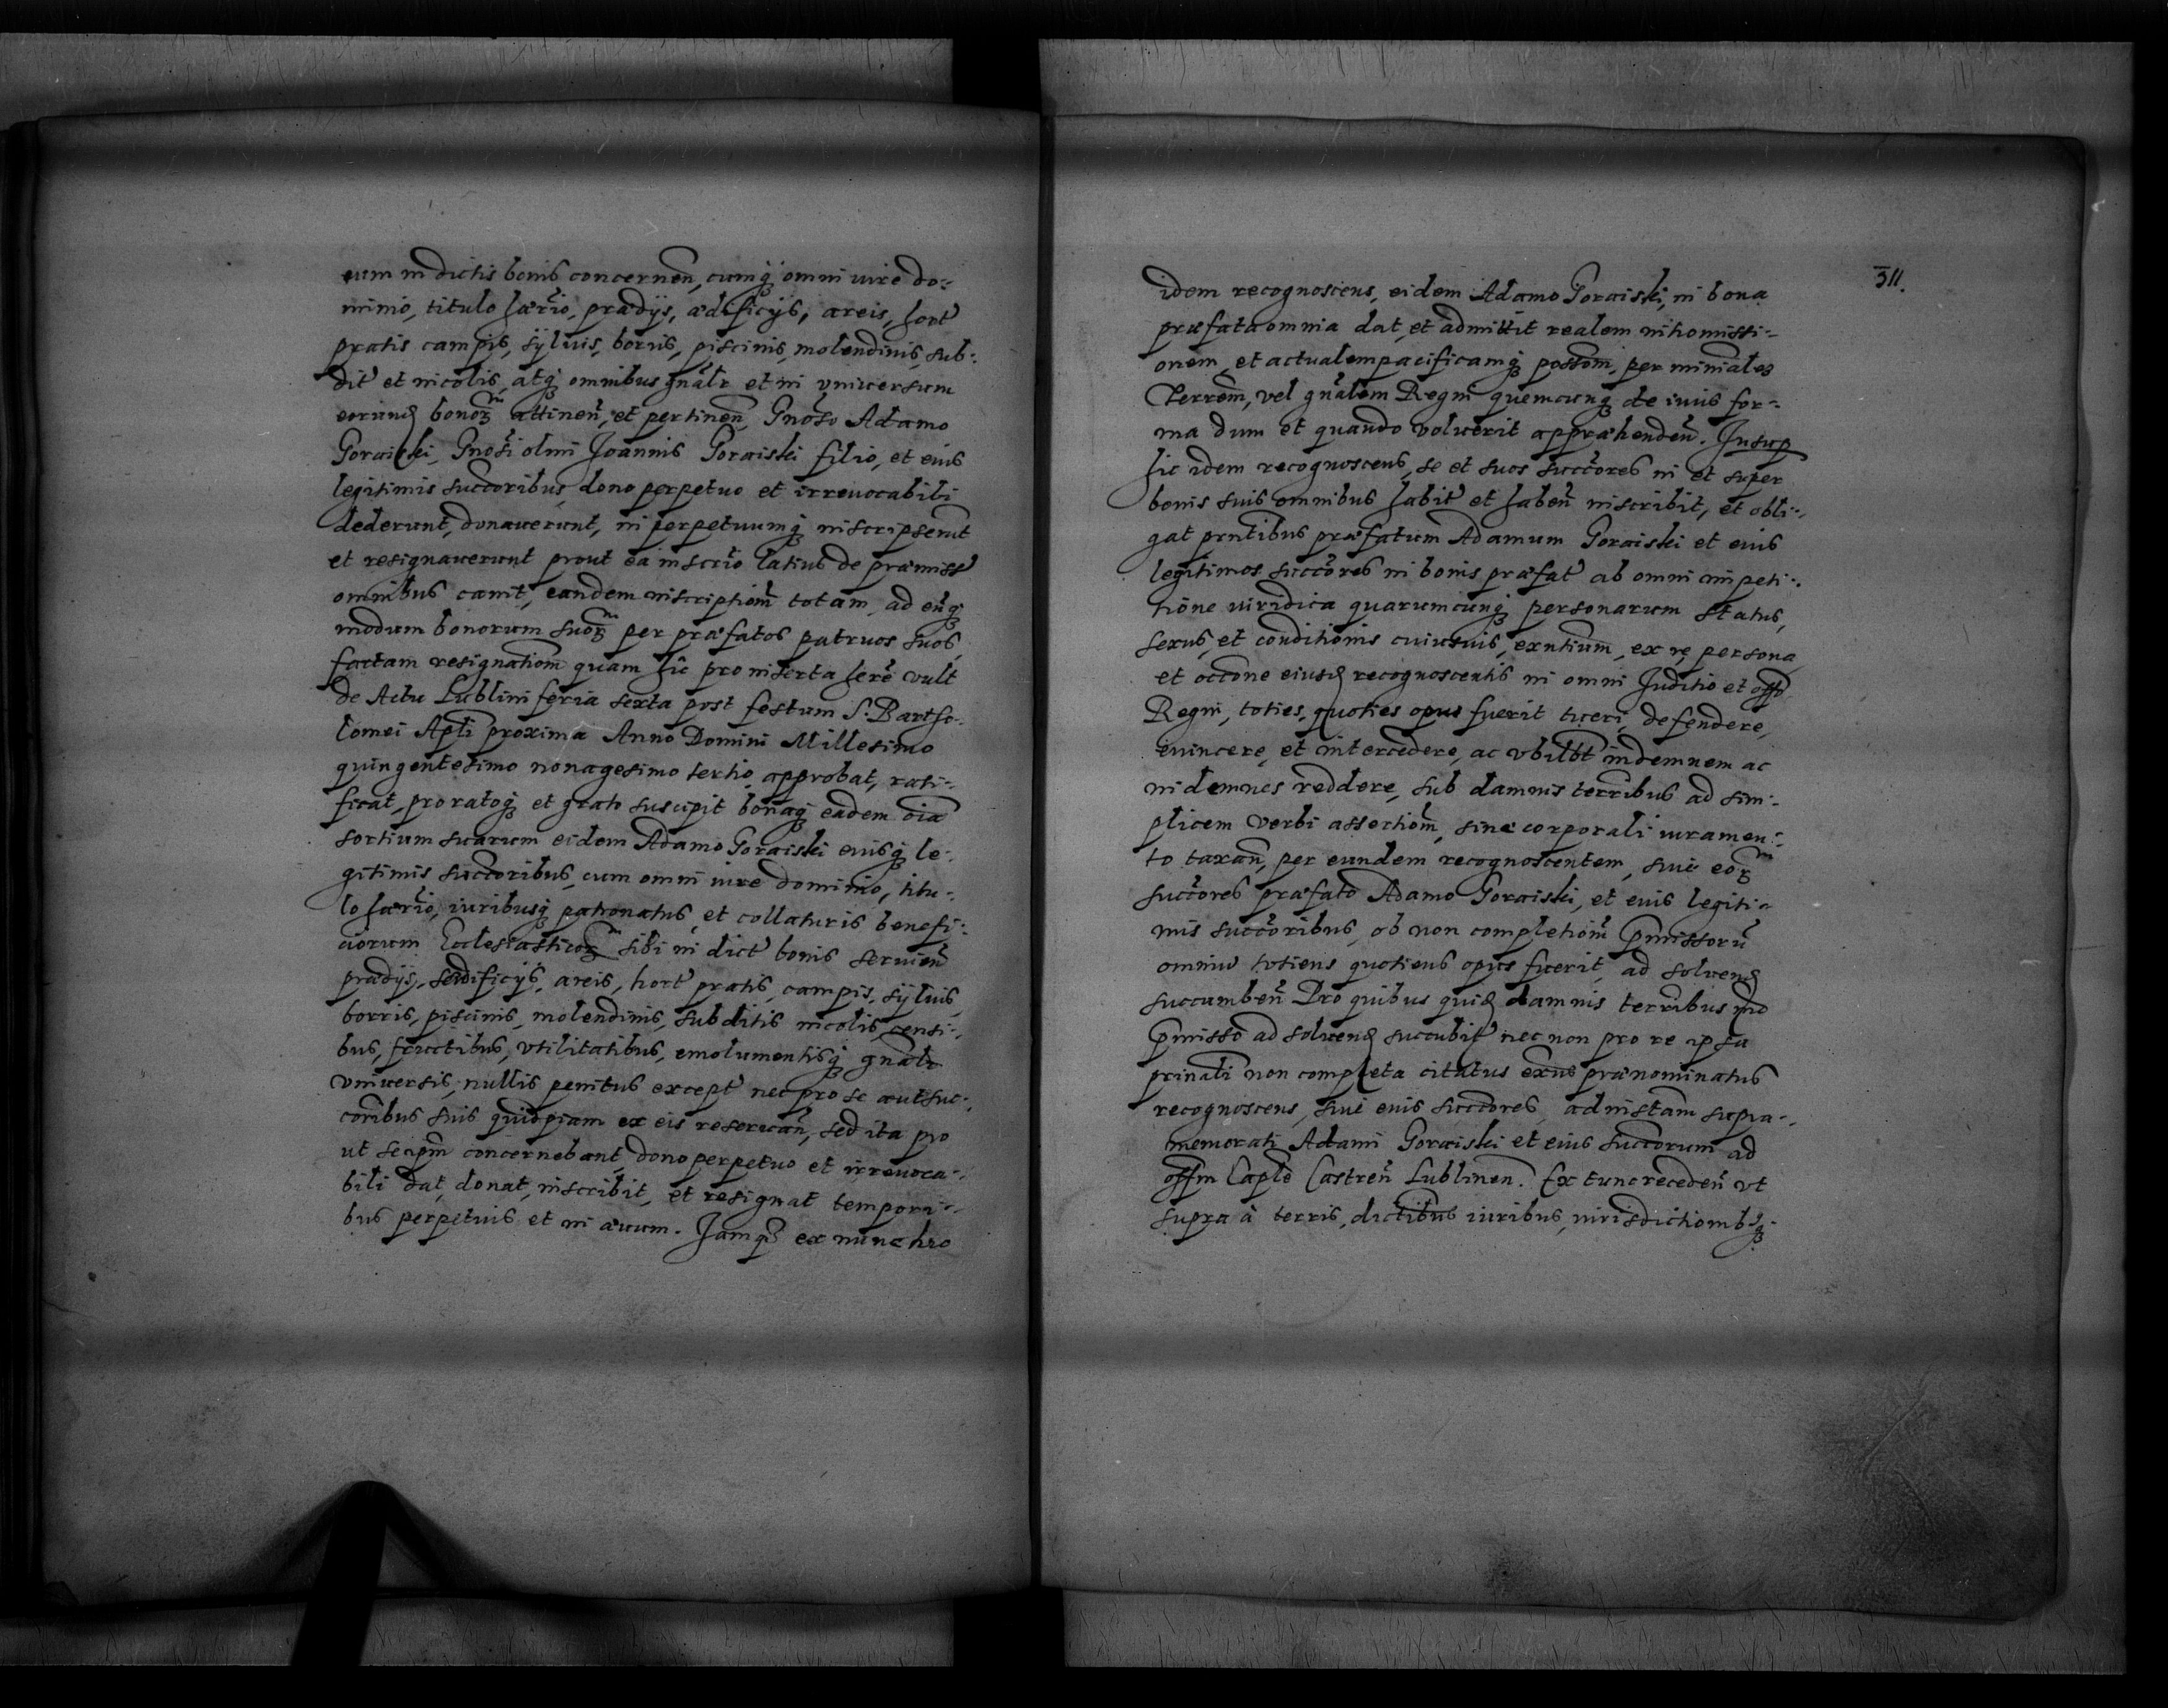 eum in dictis bonis concernen̄, cumq; omni iure do-
minio, titulo hærio, prædijs, ædificijs, areis, hort
pratis campis, syluis, borris, piscinis, molendinis, sub-
dit et incolis, atq; omnibus gnālr et in vniuersum
eorund bonor attinen̄, et pertinen̄, Gnoso Adamo
Goraiski, Gnosi olim Joannis Goraiski filio, et eius
legitimis succoribus, dono perpetuo et irreuocabili
dederunt, donauerunt, in perpetuumq; inscripserunt
et resignauerunt prout ea inscrio latius de præmiss
omnibus canit, eandem inscriptiom̄ totam, ad eūq;
modum bonorum suor per præfatos patruos suos,
factam resignatiom̄ quam hīc pro inserta here vult
de Actu Lublini feria sexta post festum S. Bartho-
lomei Apli proxima Anno Domini Millesimo
quingentesimo nonagesimo tertio, approbat, rati-
ficat, pro ratoq; et grato suscipit bonaq; eadem oīa
sortium suarum eidem Adamo Goraiski eiusq; le-
gitimis succoribus, cum omni iure dominio, titu-
lo hærio, iuribusq; patronatus, et collaturis benefi-
ciorum Ecclesiasticor sibi in dict bonis seruien̄
prædijs, ædificijs, areis, hort pratis, campis, syluis,
borris, piscinis, molendinis, subditis incolis, censi-
bus, fructibus, vtilitatibus, emolumentisq; gnālr
vniuersis, nullis penitus except nec pro se aut suc-
coribus suis quidpiam ex eis reseruan̄, sed ita pro
ut se ipm̄ concernebant, dono perpetuo et irreuoca-
bili dat, donat, inscribit, et resignat tempori-
bus perpetuis et in æuum. Jamq; ex nunc hic
311.
idem recognoscens, eidem Adamo Goraiski, in bona
præfata omnia dat, et admittit realem intromissi-
onem, et actualem pacificamq; possom̄, per minialez
Terrem̄, vel gnālem Regni quemcunq; de iuris for-
ma dum et quando voluerit appræhenden̄. Insup
hic idem recognoscens, se et suos succores in et super
bonis suis omnibus habit et haben̄ inscribit, et obli-
gat pntibus præfatum Adamum Goraiski et eius
legitimos succores in bonis præfat ab omni impeti-
tione iuridica quarumcunq; personarum status,
sexus, et conditionis cuiusuis, exntium, ex re persona
et occone eiusd recognoscentis in omni Juditio et offo
Regni, toties, quoties opus fuerit tueri, defendere,
euincere, et intercedere, ac vbilbt indemnem ac
indemnes reddere, sub damnis terribus ad sim-
plicem verbi assertiom̄, sine corporali iuramen-
to taxan̄, per eundem recognoscentem, siue eor
succores præfato Adamo Goraiski, et eius legiti-
mis succoribus, ob non completiom̄ pmissorū
omniū totiens quotiens opus fuerit, ad soluend
succumben̄ Pro quibus quid damnis terribus mo
pmisso ad soluend succubit nec non pro re ipsa
prinali non completa citatus exus prænominatus
recognoscens, siue eius succores, ad instam supra-
memorati Adami Goraiski et eius succorum ad
offm Caple Castren̄ Lublinen̄. Ex tunc receden̄ vt
supra à terris, dictibus iuribus, iurisdictiombq;